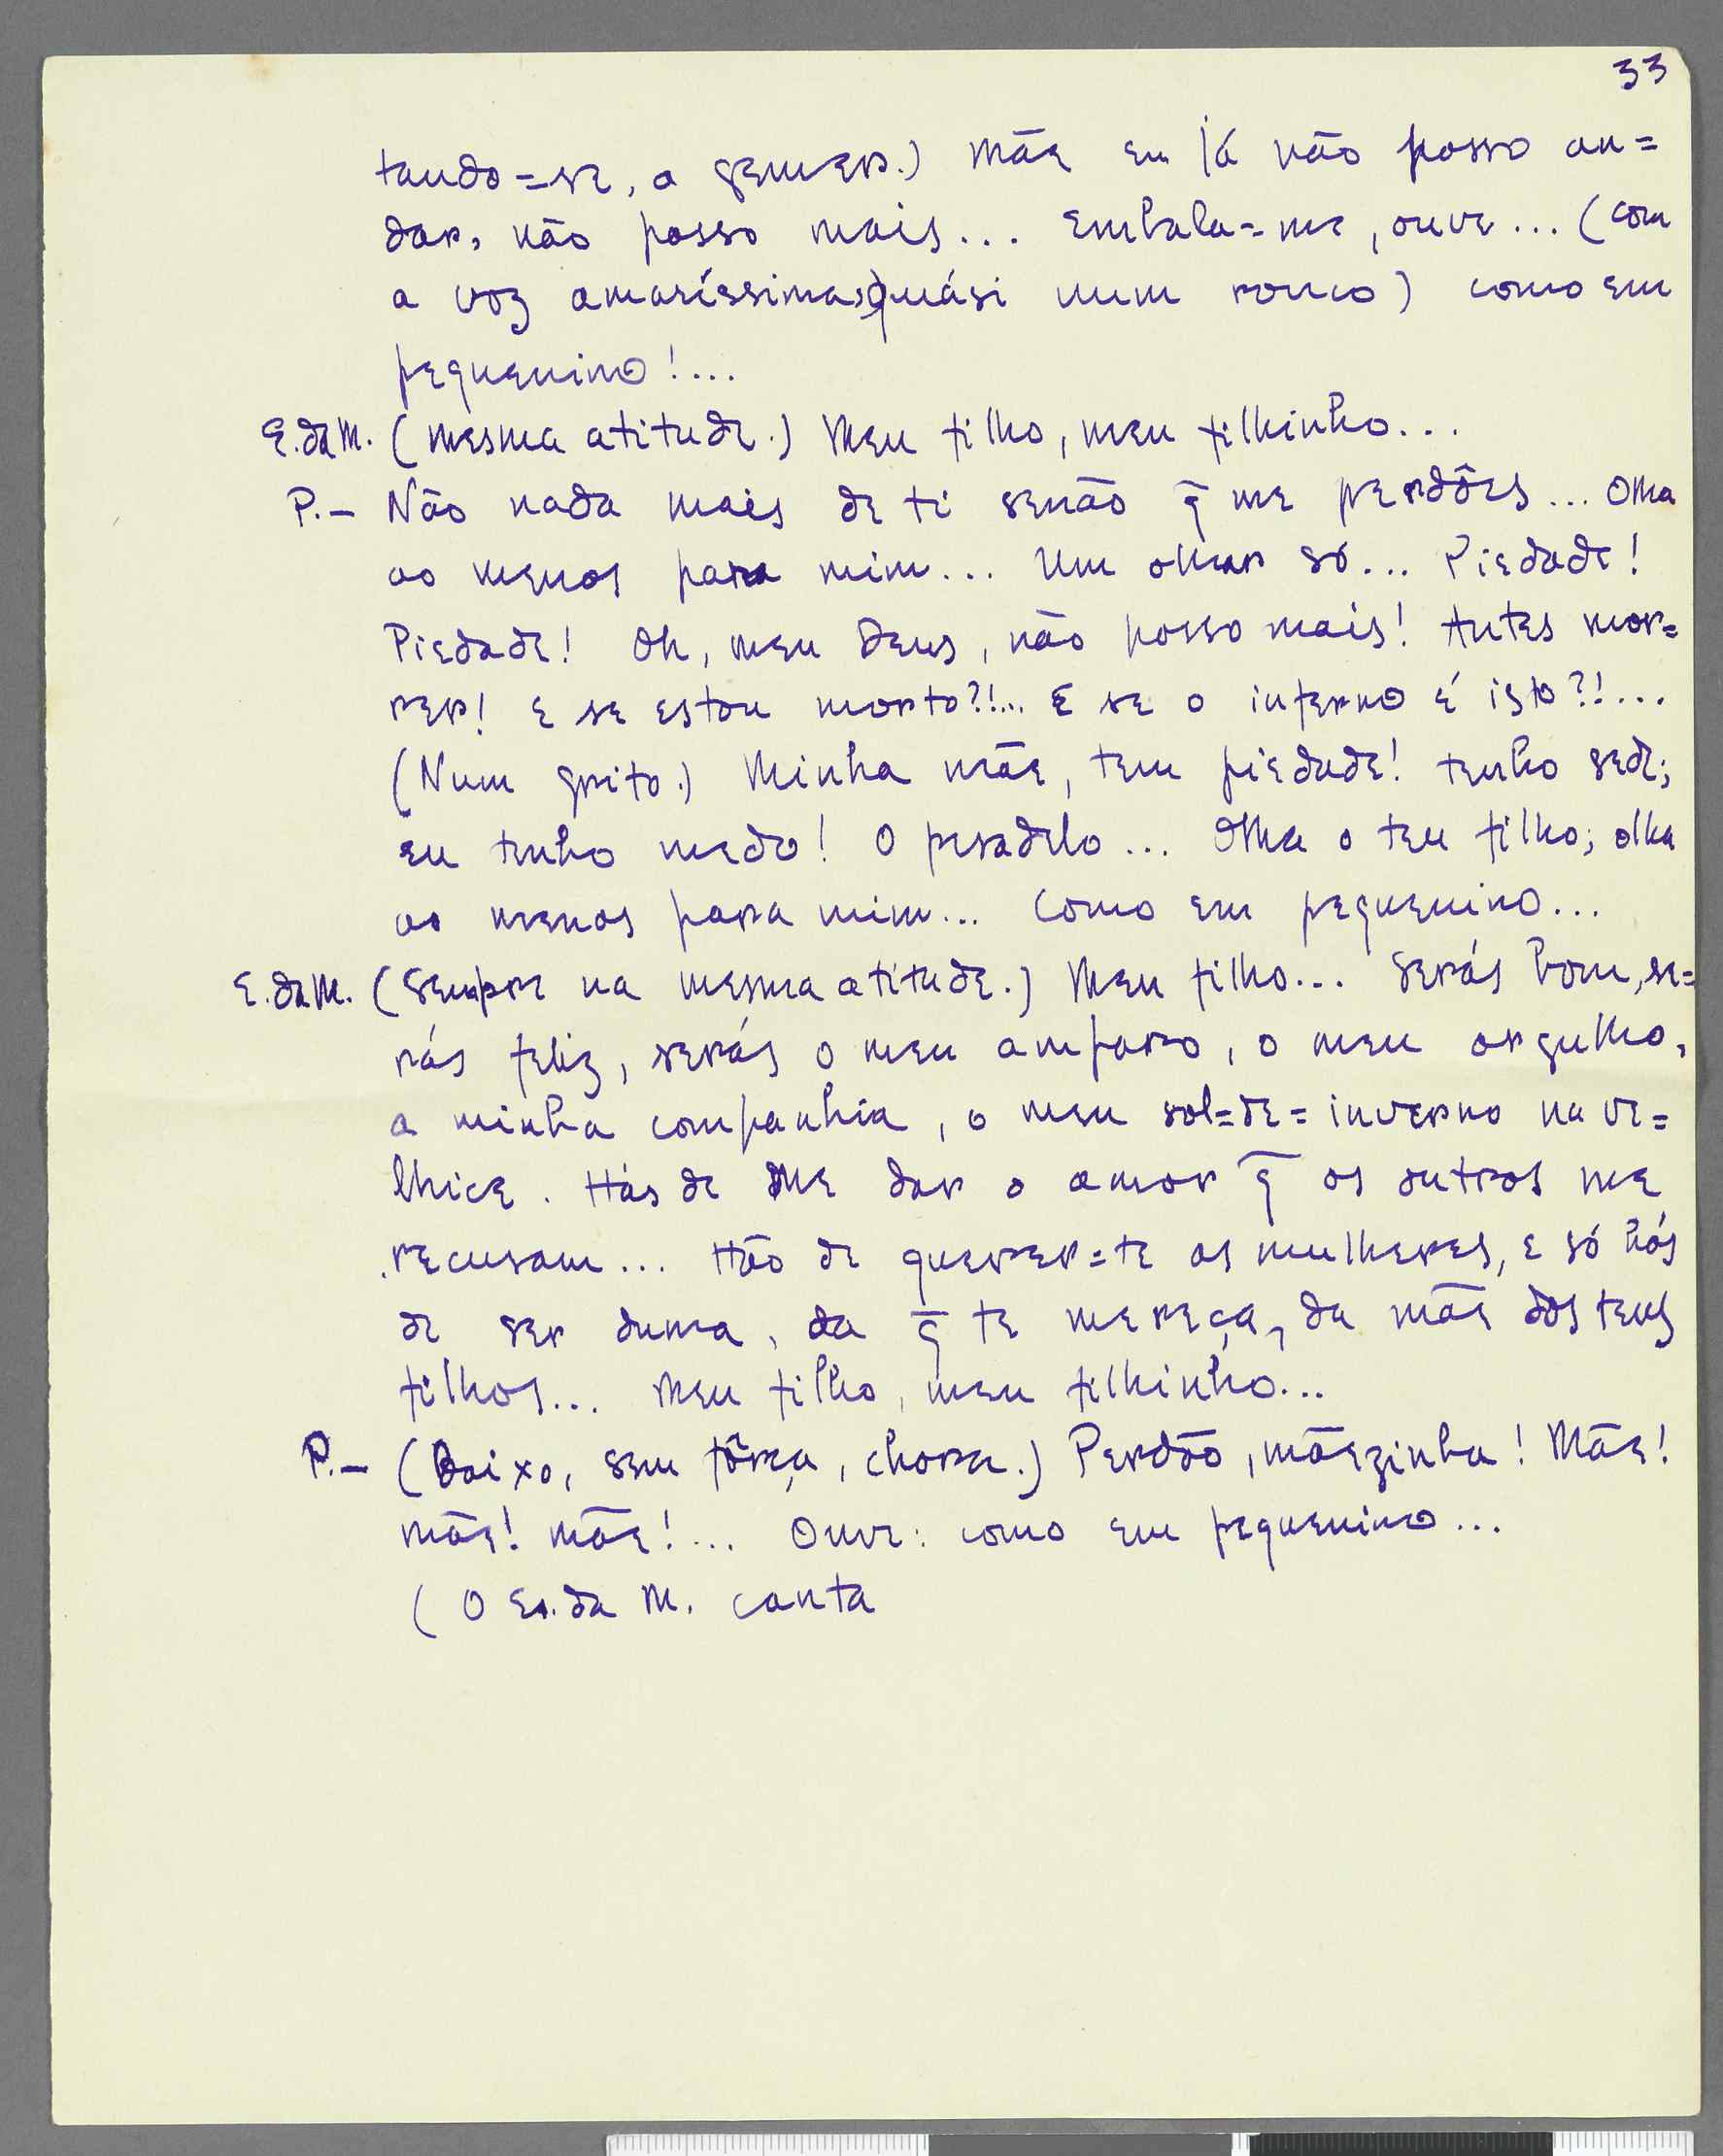 33
tando=se, a gemer.) Mãe eu já não posso an=
dar, não posso mais... Embala=me, ouve... (com
a voz amaríssima, quási num rouco) como em
pequenino!...
E. da M. (mesma atitude.) Meu filho, meu filhinho...
P.– Não nada mais de ti senão q̄ me perdôes... Olha
ao menos para mim... Um olhar só... Piedade!
Piedade! Oh, meu Deus, não posso mais! Antes mor=
rer! E se estou morto?!... E se o inferno é isto?!...
(Num grito.) Minha mãe, tem piedade! tenho sede;
eu tenho medo! O pesadelo... Olha o teu filho; olha
ao menos para mim... Como em pequenino...
E. da M. (Sempre na mesma atitude.) Meu filho... Serás bom, se=
rás feliz, serás o meu amparo, o meu orgulho,
a minha companhia, o meu sol=de=inverno na ve=
lhice. Hás de me dar o amor q̄ os outros me
recusam... Hão de querer=te as mulheres, e só hás
de ser duma, da q̄ te mereça, da mãe dos teus
filhos... Meu filho, meu filhinho...
P.– (Baixo, sem fôrça, chora.) Perdão, mãezinha! Mãe!
mãe! mãe!... Ouve: como em pequenino...
( O E. da M. canta